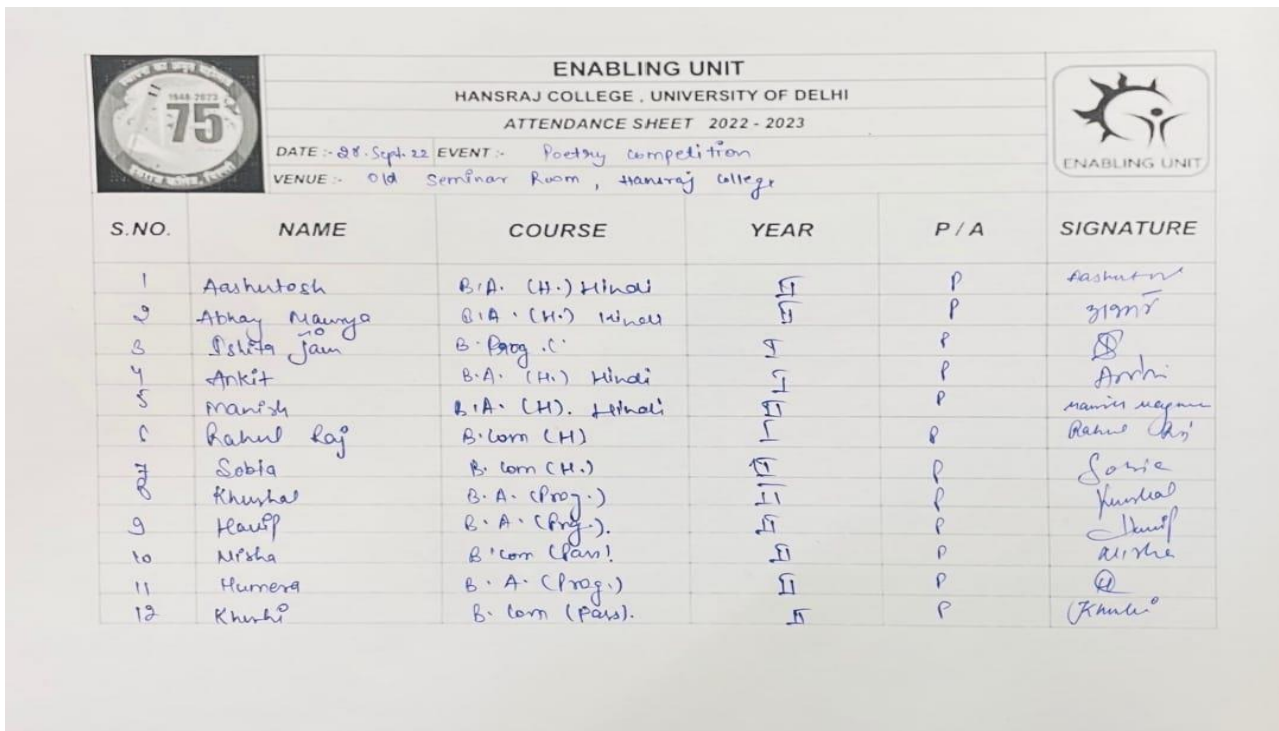 1948-2023
75
ENABLING UNIT
HANSRAJ COLLEGE , UNIVERSITY OF DELHI
ATTENDANCE SHEET 2022 - 2023
DATE :- 28. Sept. 22 EVENT :- Poetry competition
VENUE :- Old Seminar Room , Hansraj College
ENABLING UNIT
S.NO. NAME COURSE YEAR P / A SIGNATURE
1 Aashutosh B.A. (H.) Hindi P
2 Abhay Maurya B.A. (H.) Hindi P
3 Ishita Jain B. Prog. P
4 Ankit B.A. (H.) Hindi P
5 Manish B.A. (H). Hindi P
6 Rahul Raj B.Com (H) I P Rahul Raj
7 Sobia B. Com (H.) P Sobia
8 Khushal B. A. (Prog.) II P Khushal
9 Hanif B. A. (Prg.). II P Hanif
10 Nisha B.com (Pass) II P Nisha
11 Humera B. A. (Prog.) II P
12 Khushi B. Com (Pass). II P Khushi